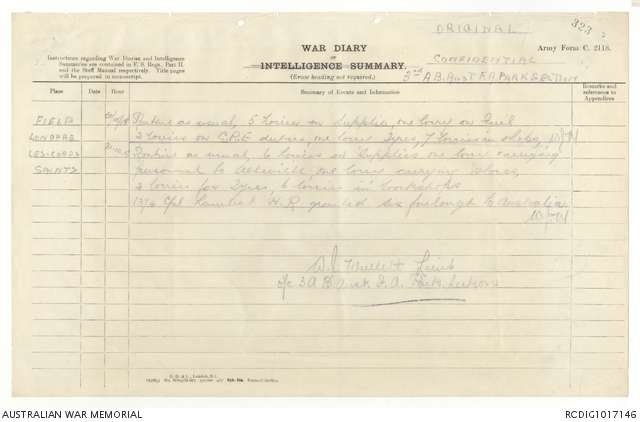 ORIGINAL
323
WAR DIARY
or
INTELLIGENCE SUMMARY.
(Erase heading not required.)
Instructions regarding War Diaries and Intelligence
Summaries are contained in F. S. Regs., Part II.
and the Staff Manual respectively. Title pages
will be prepared in manuscript.
CONFIDENTIAL
Army Form C. 2118.
3rd A.B. Aust F.A. PARK SECTION
Place
Date
Hour
Summary of Events and Information
Remarks and
references to
Appendices
FIELD
Routine as usual, 5 Lorries on Supplies, one lorry on
LONGPRE
2 Lorries on C.R.E duties, one lorry Tyres, 7 lorries in
LES-CORPS
Routine as usual, 6 lorries on Supplies one lorry carrying
SAINTS
personnel to Abbeville, one lorry carrying Stores,
2 lorries for Tyres, 6 lorries in workshops
Cpl Lambert H.R. granted furlough to Australia
Lieut
o/c 3 A B Aust F. A. Park Section
AUSTRALIAN WAR MEMORIAL
RCDIG1017146